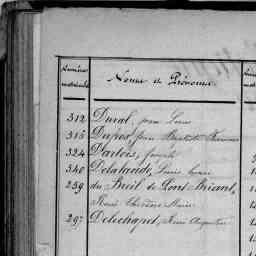 Numéro
matricule
Noms et Prénoms
312 Duval, Louis
315 Dupos Baptiste
324 Dartois, Joseph
340 Delahaide, Louis
259 du Breil de Pont Briant,
René Marie
297 Delechapel, René Augustin